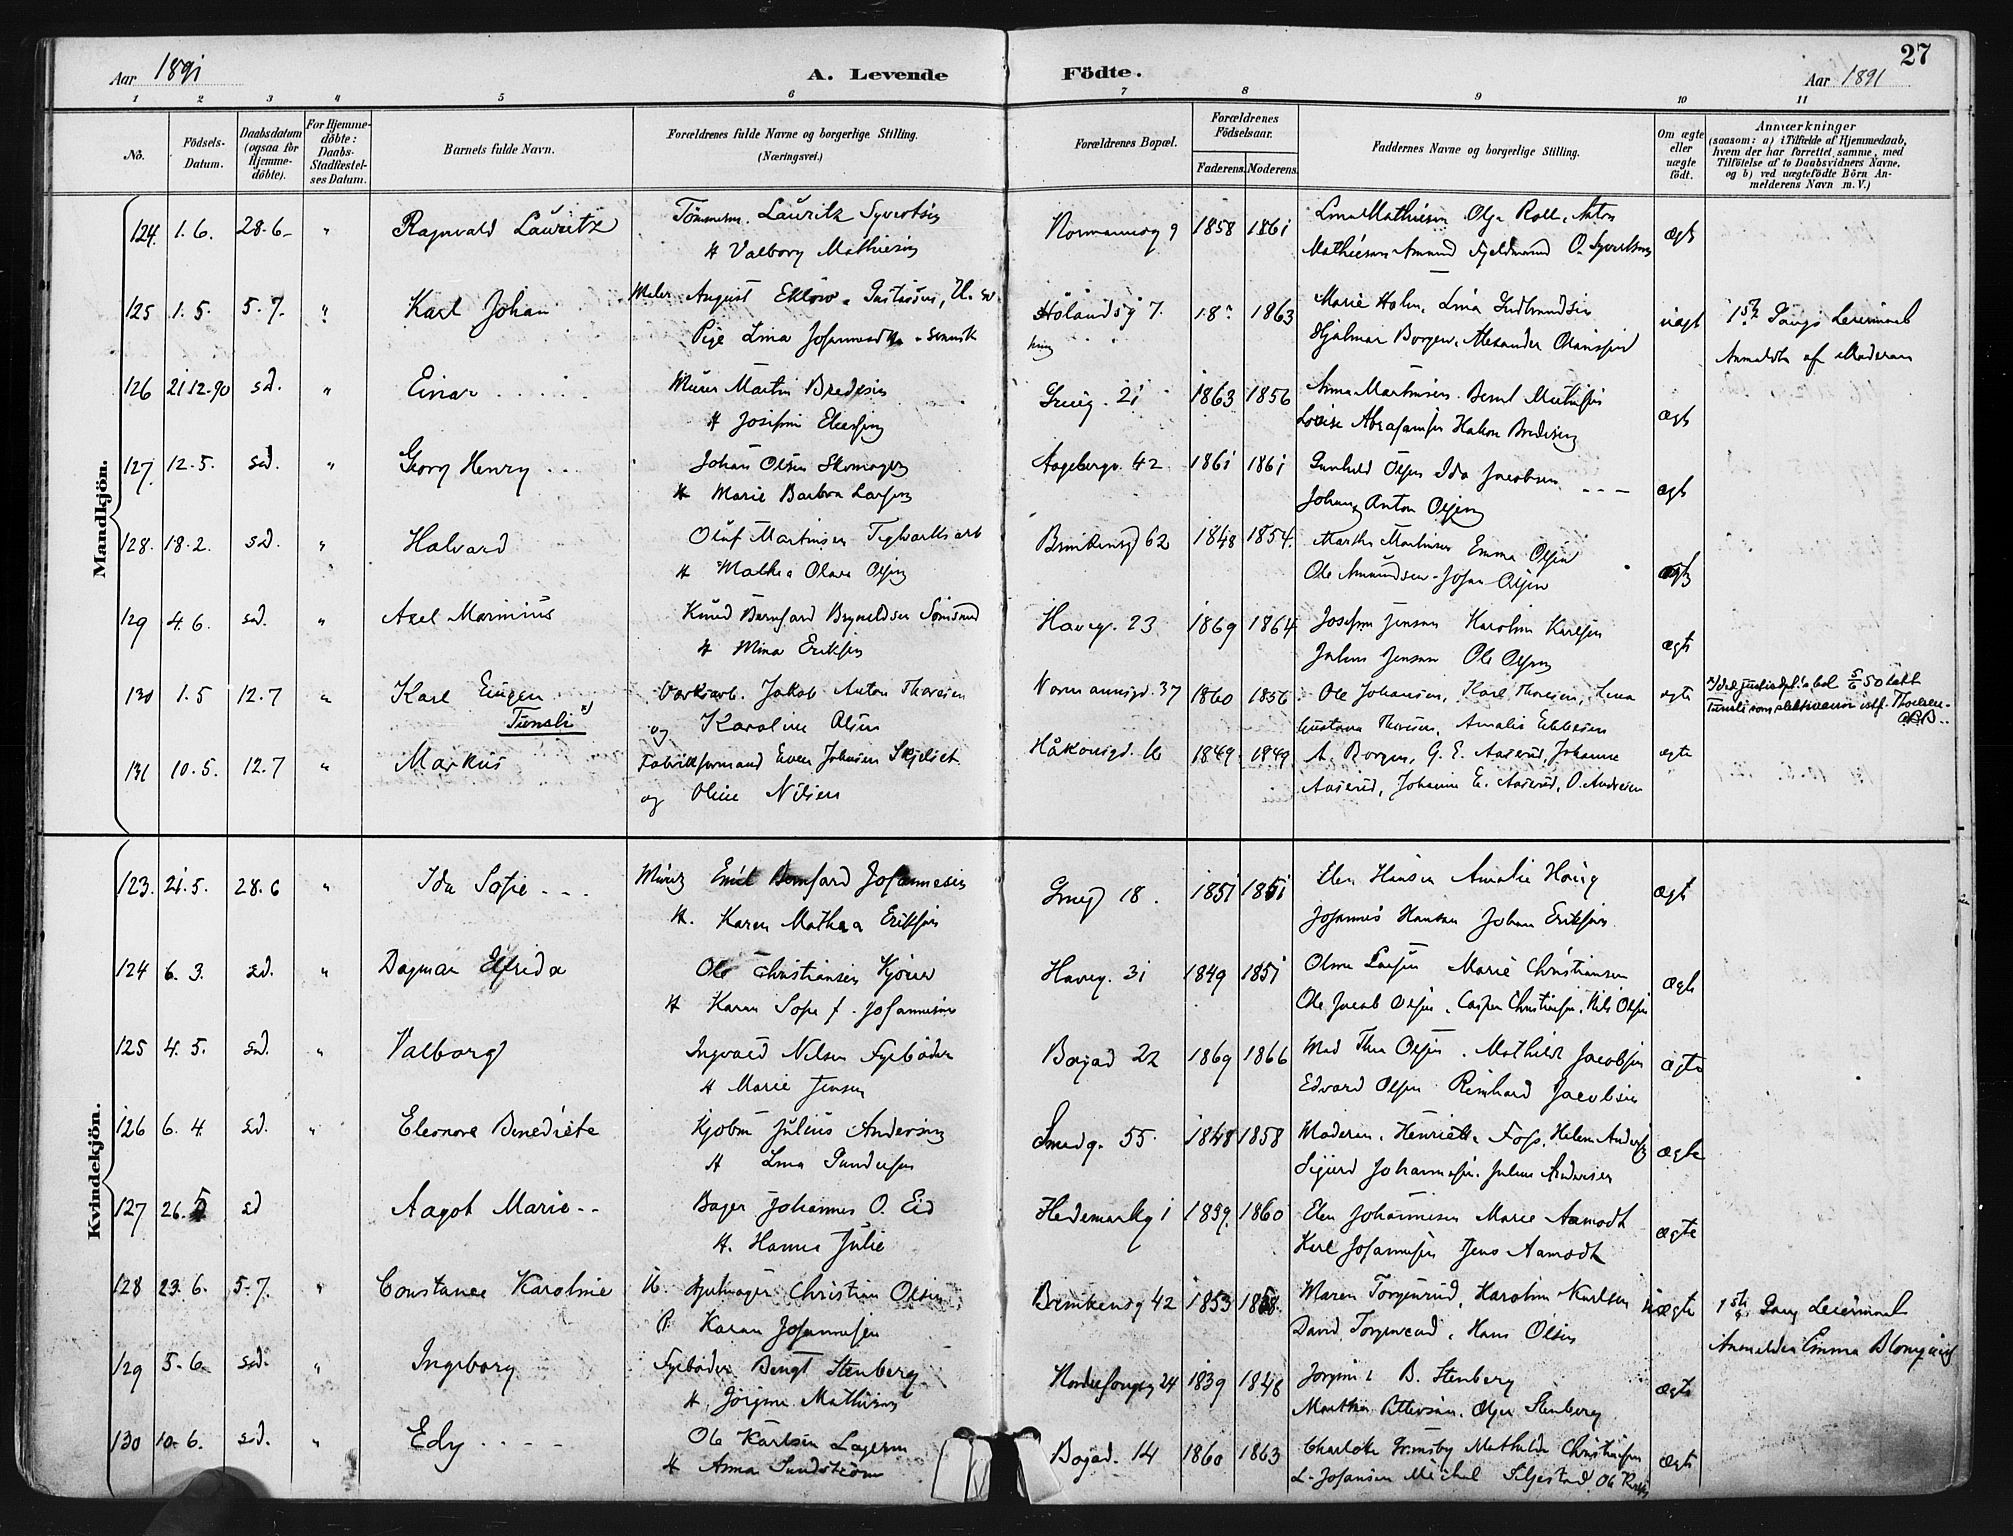 27
Aar 1891
A. Levende Födte.
Aar 1891
1 2 3 4 5 6 7 8 9 10 11
No.
Födsels-Datum.
Daabsdatum (ogsaa for Hjemme-döbte).
For Hjemme-döbte: Daabs-Stadfæstel-ses Datum.
Barnets fulde Navn.
Forældrenes fulde Navne og borgerlige Stilling.
(Næringsvei.)
Forældrenes Bopæl.
Forældrenes Födselsaar.
Faderens. Moderens.
Faddernes Navne og borgerlige Stilling.
Om ægte eller uægte födt.
Anmærkninger
(saasom: a) i Tilfælde af Hjemmedaab,
hvem der har forrettet samme, med
Tilföielse af to Daabsvidners Navne,
og b) ved uægtefödte Börn An-
melderens Navn m. V.)
Mandkjön.
124. 1.6. 28.6. " Ragnvald Lauritz Tömmerm. Lauritz Syvertsen Normannsg 9 1858 1861 Lina Mathiesen Olga Roll, Anton ægte
H Valborg Mathiesen Mathiesen Amund Fjeldmand O. Syvertsen
125 1.5. 5.7. " Karl Johan Maler August Eklöw Hölandsg 7. 18 1863 Marie Holm, Lina Gudmundsen uægt 1ste Gangs Leiermaal
Pige Lina svensk Hjalmar Borgen, Alexander Anmeldt af Moderen
126 21.12.90 sd. " Einar Murer Martin Bredesen 21 1863 1856 Anna Martinsen Bernt Mathisen ægte
H Josefine Louise Abrahamsen Hakon Bredesen
127. 12.5. sd. " Georg Henry Johan Olsen Skomager Aagebergv. 42 1861 1861 Gunhild Olsen Ida Jacobsen ægte
H Marie Barbra Larsen Johan Anton Olsen
128. 18.2. sd. " Halvard Oluf Martinsen Teglværksarb Brinkensg 62 1848 1854. Martha Martinsen Emma Olsen ægte
H Mathea Olava Olsen Ole Amundsen Johan Olsen
129 4.6. sd. " Axel Marinius Knud Bernhard Brynildsen Sömand Haveg. 23 1869 1864 Josefine Jensen Karoline Karlsen ægte
H Mina Eriksen Julius Jensen Ole Olsen
130 1.5 12.7 " Karl Eugen Værksarb. Jakob Anton Thoresen Normannsgd. 37 1860 1856 Ole Johansen, Karl Thoresen, Lina ægte
Tunsli x) og Karoline Olsen Gustava Thoresen, Amalie Ebbesen
131 10.5. 12.7 " Markus Fabrikformand Even Johnsen Skjelset Håkonsgd. 16 1849 1849 A. Borgen, G. E. Aaserud, Johanne ægte
og Oline Nilsen Aaserud, Johanne E. Aaserud, O. Andresen
Kvindekjön.
123. 21.5. 28.6 " Ida Sofie Murer Emil Bernhard Johannesen 18. 1851 1851 Elen Hansen Amalie Höieg ægte
H. Karen Mathea Eriksen Johannes Hansen Johan Eriksen
124 6.3. sd. " Dagmar Elfrida Ole Christiansen Kjörer Haveg. 31 1849 1851 Olava Larsen Marie Christiansen ægte
H Karen Sofie f. Johannesen Ole Jacob Olsen, Casper Christiansen, Nils Olsen
125 4.5. sd. " Valborg Ingvald Nilsen Fyrböder Bogad 22 1869 1866 Mad Thea Olsen, Mathilde Jacobsen ægte
H Marie Jensen Edvard Olsen Reinhard Jacobsen
126 6.4. sd. " Eleonore Benedicte Kjöbm Julius Andersen Smedg. 55 1848 1858 Moderen, Henriette Foss, Helene Andersen ægte
H Lina Gundersen Sigurd Johannesen, Julius Andersen
127 26.5 sd " Aagot Marie Bager Johannes O. Eid Hedemarkg 1 1839. 1860 Elen Johannesen Marie Aamodt ægte
H. Hanna Julie Karl Johannesen Jens Aamodt
128 23.6. 5.7. " Constance Karoline U. Christian Olsen Brinkensg 42 1853 1858. Maren Torgersrud, Karoline Karlsen uægte 1ste Gang Leiermaal
P. Karen Johannesen David Torgersrud, Hans Olsen Anmelder Emma Blomqvist
129 5.6. sd. " Ingeborg Fyrböder Bengt Stenberg 24 1839 1848 B. Stenberg ægte
H. Jörgine Mathisen Marthea Pettersen, Olga Stenberg
130 10.6. sd. " Edy Ole Karlsen Lagerm Bogad. 14 1860 1863 Charlotte Grimsby Mathilde Christiansen ægte
H Anna Sundström L. Johansen Michal